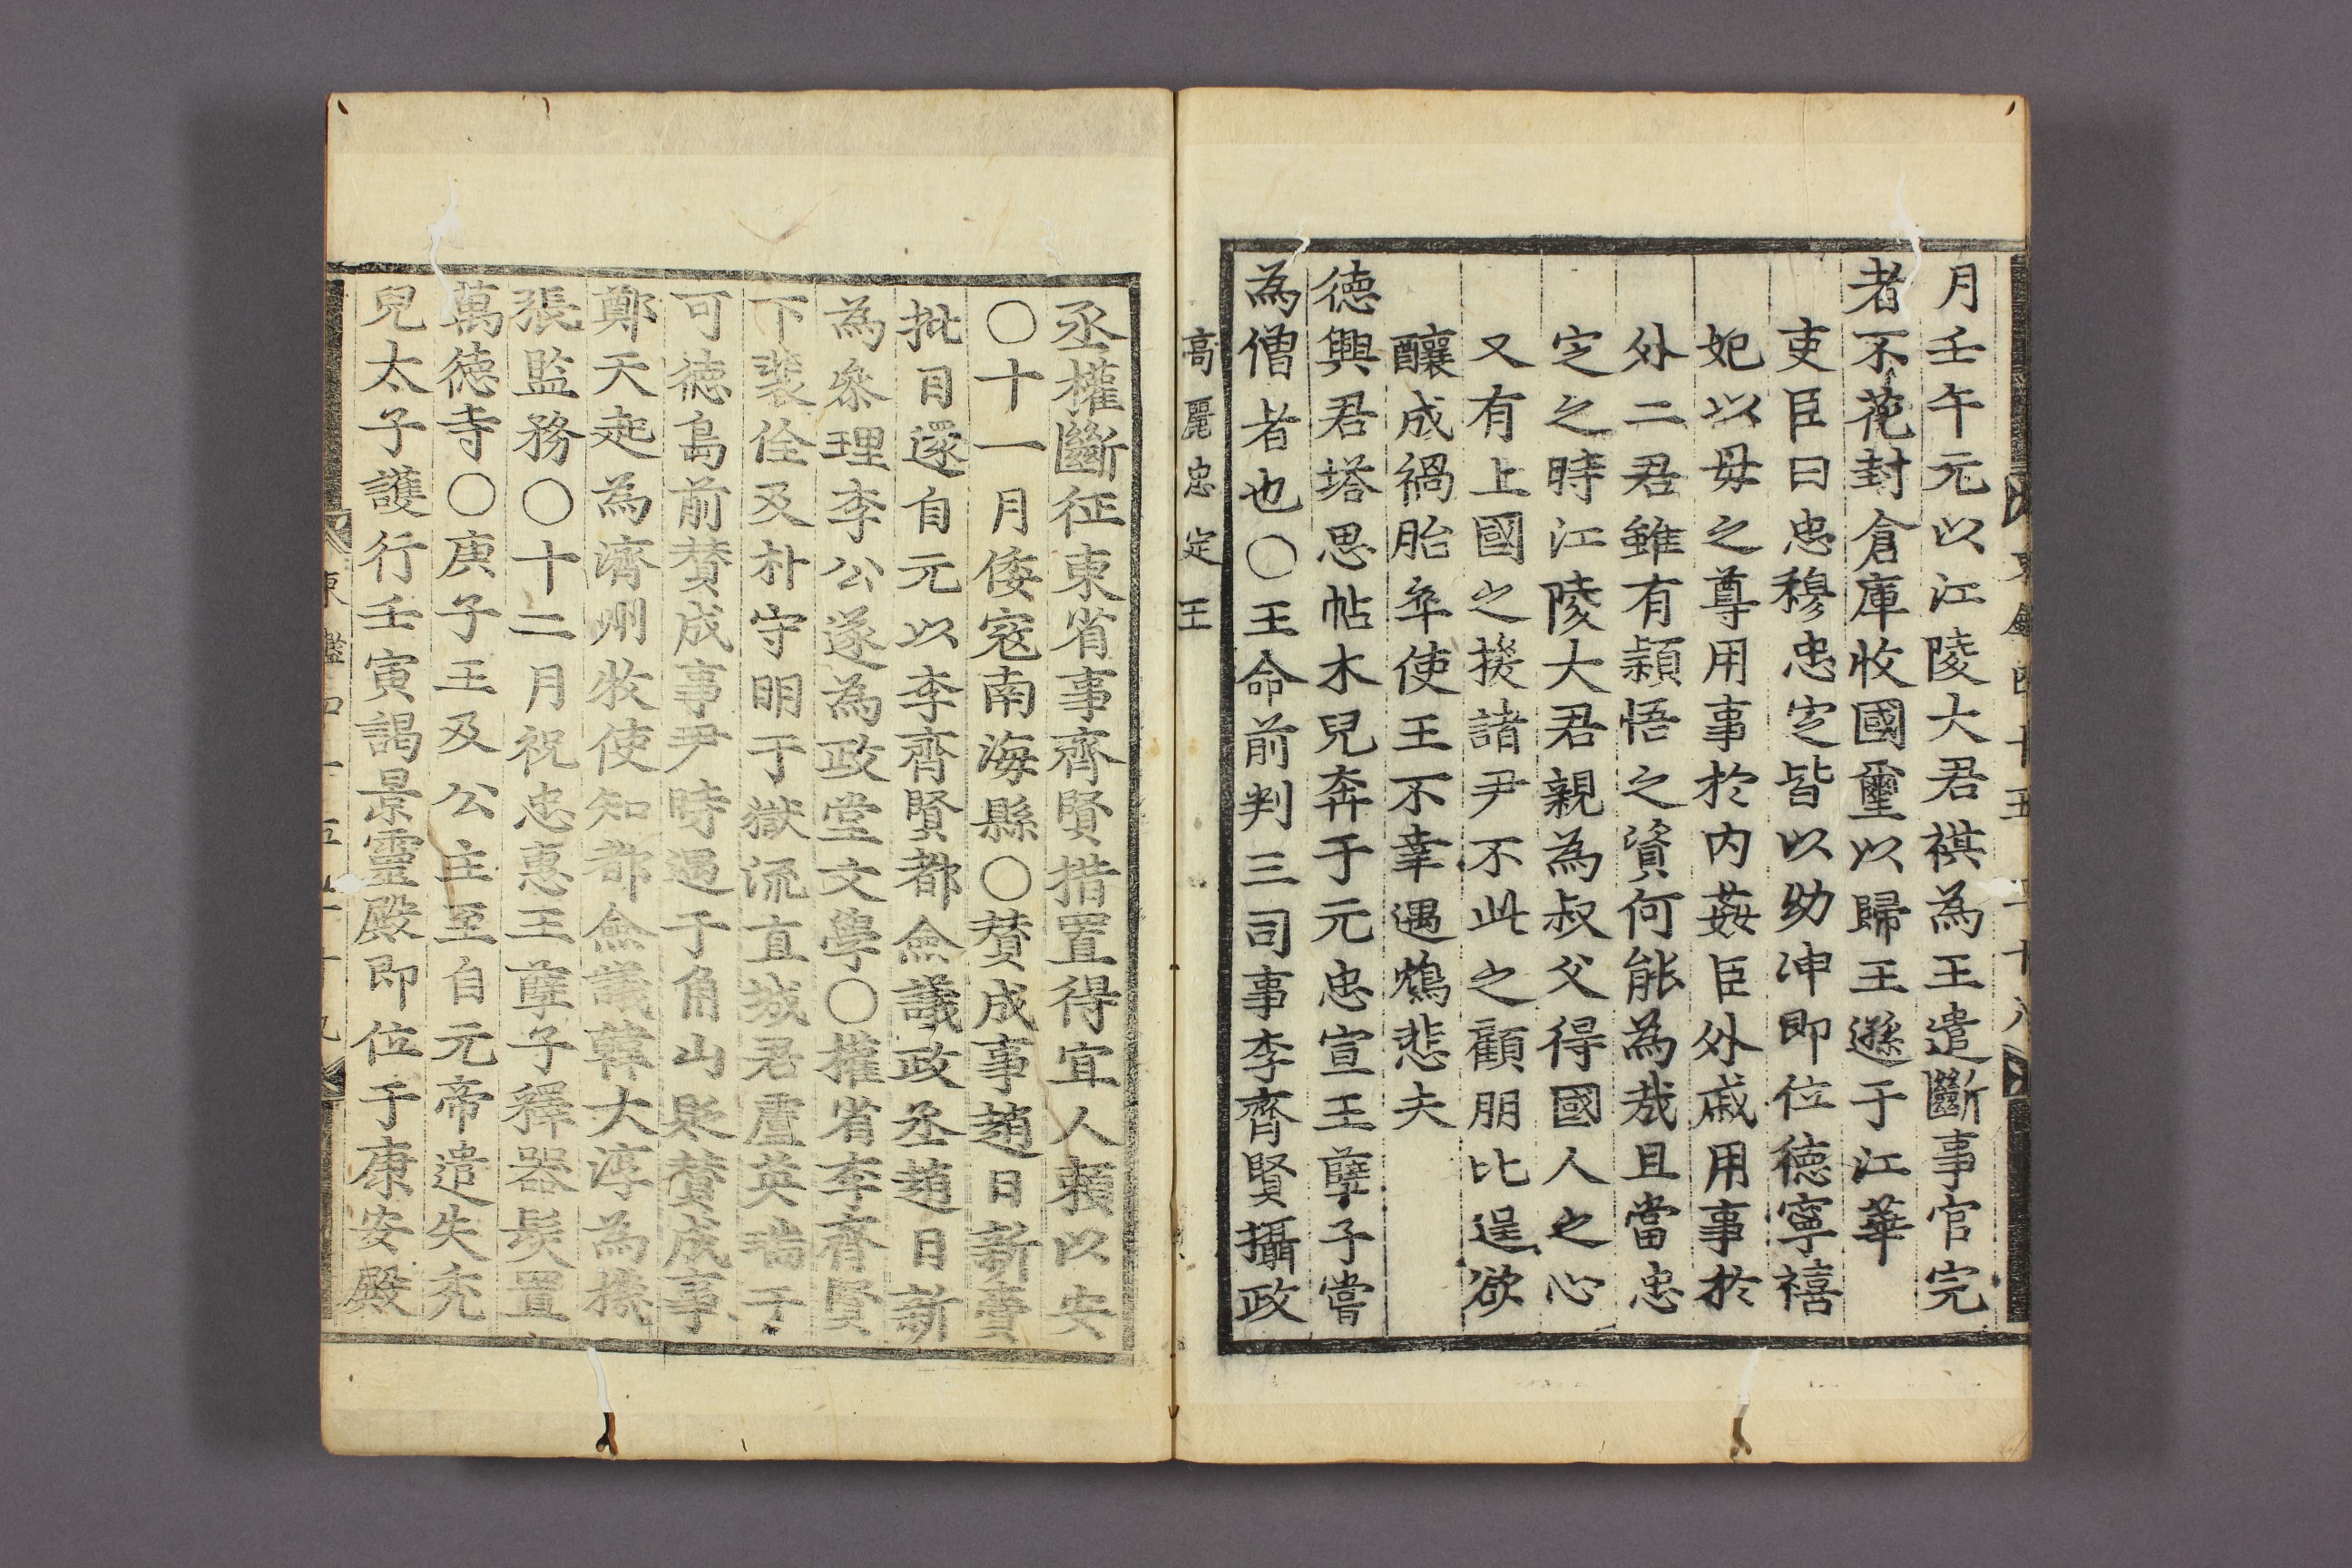 月壬午元以江陵大君祺為王遣斷事官完
者不花封倉庫收國璽以歸王遜于江華
史臣曰忠穆忠定皆以幼冲即位德寧禧
妃以母之尊用事於内姦臣外戚用事於
外二君雖有穎悟之資何能為哉且當忠
定之時江陵大君親為叔父得國人之心
又有上國之援諸尹不此之顧朋比逞欲
釀成禍胎卒使王不幸遇鴆悲夫
德興君塔思帖木兒奔于元忠宣王孽子嘗
為僧者也〇王命前判三司事李齊賢攝政
高麗忠定王
丞權斷征東省事齊賢措置得宜人賴以安
〇十一月倭寇南海縣〇賛成事趙日新賫
批目還自元以李齊賢都僉議政丞趙日新
為叅理李公遂為政堂文學〇權省李齊賢
下裴佺及朴守明于獄流直城君盧英瑞于
可德島前賛成事尹時遇于角山縣賛成事
鄭天起為濟州牧使知都僉議韓大淳為機
張監務〇十二月祝忠惠王孽子釋器髮置
萬德寺〇庚子王及公主至自元帝遣失禿
兒太子護行壬寅謁景靈殿即位于康安殿